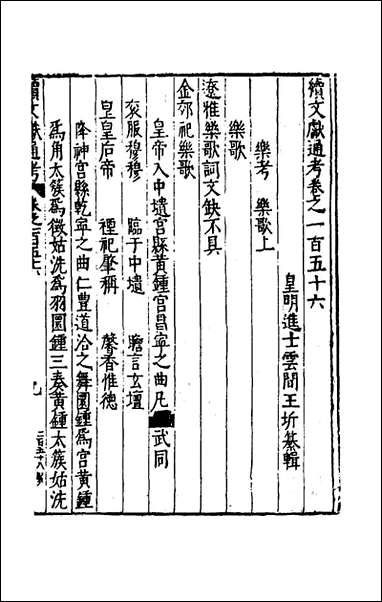 續文獻通考卷之一百五十六
皇明進士雲間王圻纂輯
樂考 樂歌上
樂歌
遼雅樂歌詞文缺不具
金郊祀樂歌
皇帝入中壝宮縣黃鍾宮昌寧之曲凡 武同
袞服穆穆 臨于中壝 瞻言玄壇
皇皇后帝 禋祀肇稱 馨香惟德
降神宮縣乾寧之曲仁豊道洽之舞圜鍾爲宮黃鍾
爲角太簇爲徵姑洗爲羽圜鍾三奏黃鍾太簇姑洗
續文獻通考